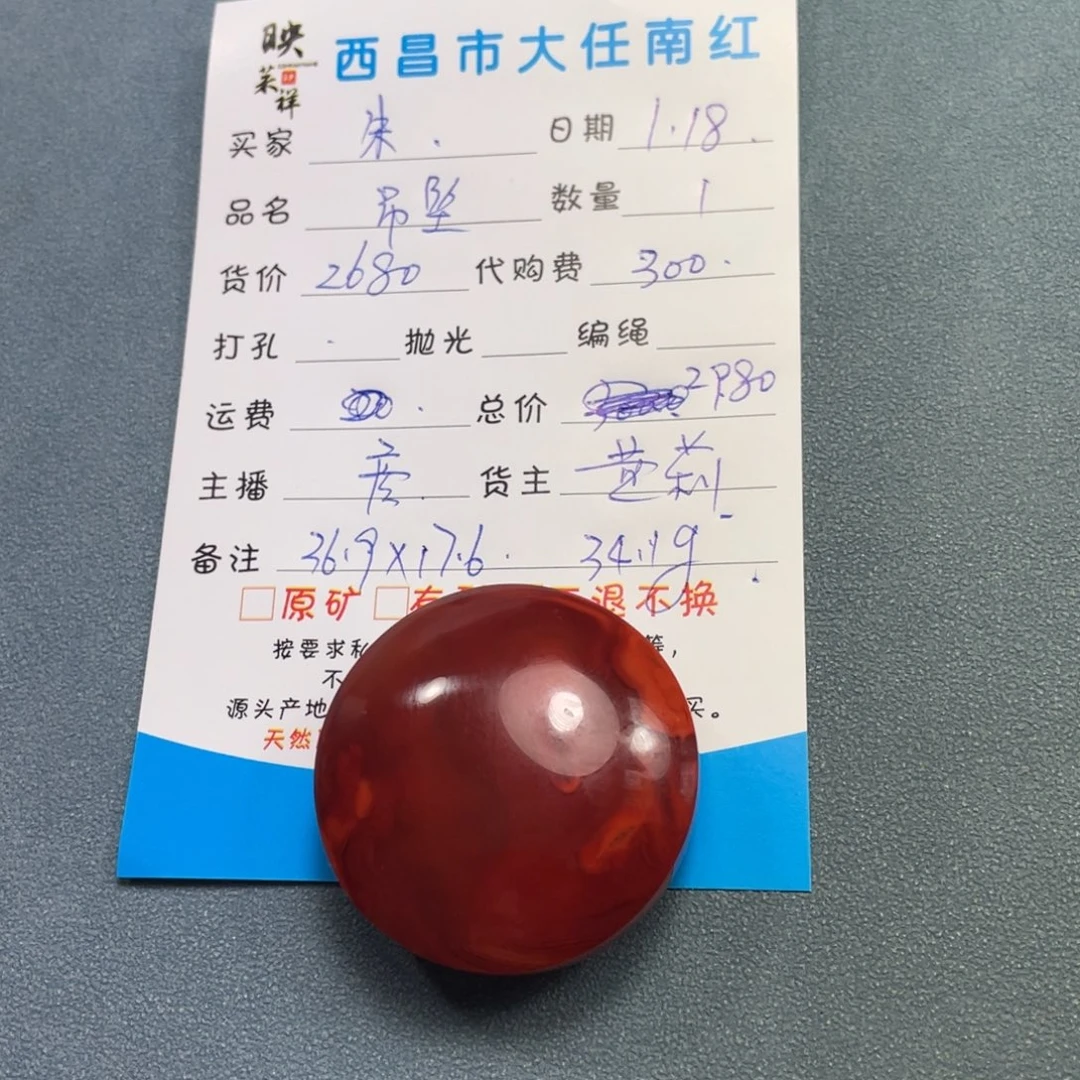 映
莱祥
西昌市大任南红
买家 朱. 日期 1.18.
品名 吊坠 数量 1
货价 2680 代购费 300.
打孔 抛光 编绳
运费 总价 2980
主播 货主
备注 36.9×17.6. 34.19g
□原矿 □有 退不换
按要求私 等,
不
源头产地 买。
天然